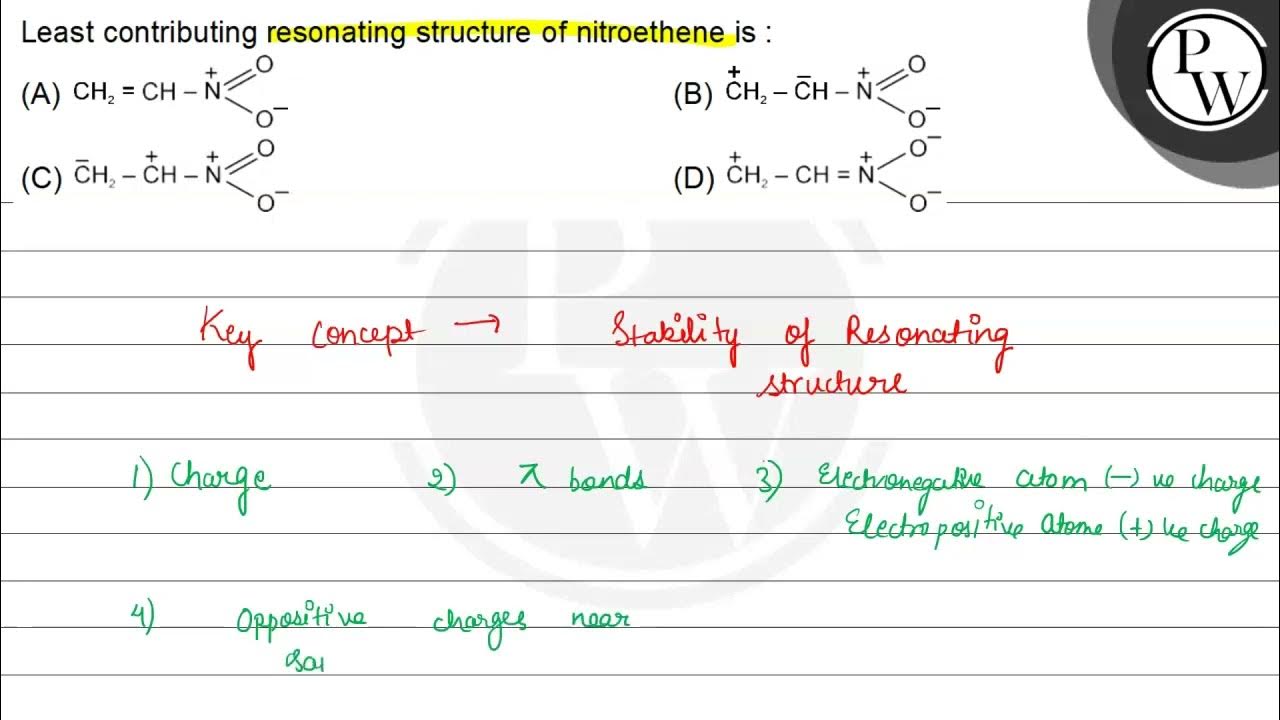 Least contributing resonating structure of nitroethene is :
(A) CH₂ = CH – N⁺ O O⁻
(B) C⁺H₂ – C⁻H – N⁺ O O⁻
(C) C⁻H₂ – C⁺H – N⁺ O O⁻
(D) C⁺H₂ – CH = N⁺ O⁻ O⁻
P
W
Key concept → Stability of Resonating
structure
1) Charge 2) π bonds 3) Electronegative atom (–) ve charge
Electropositive atome (+) ve charge
4) Oppositive charges near